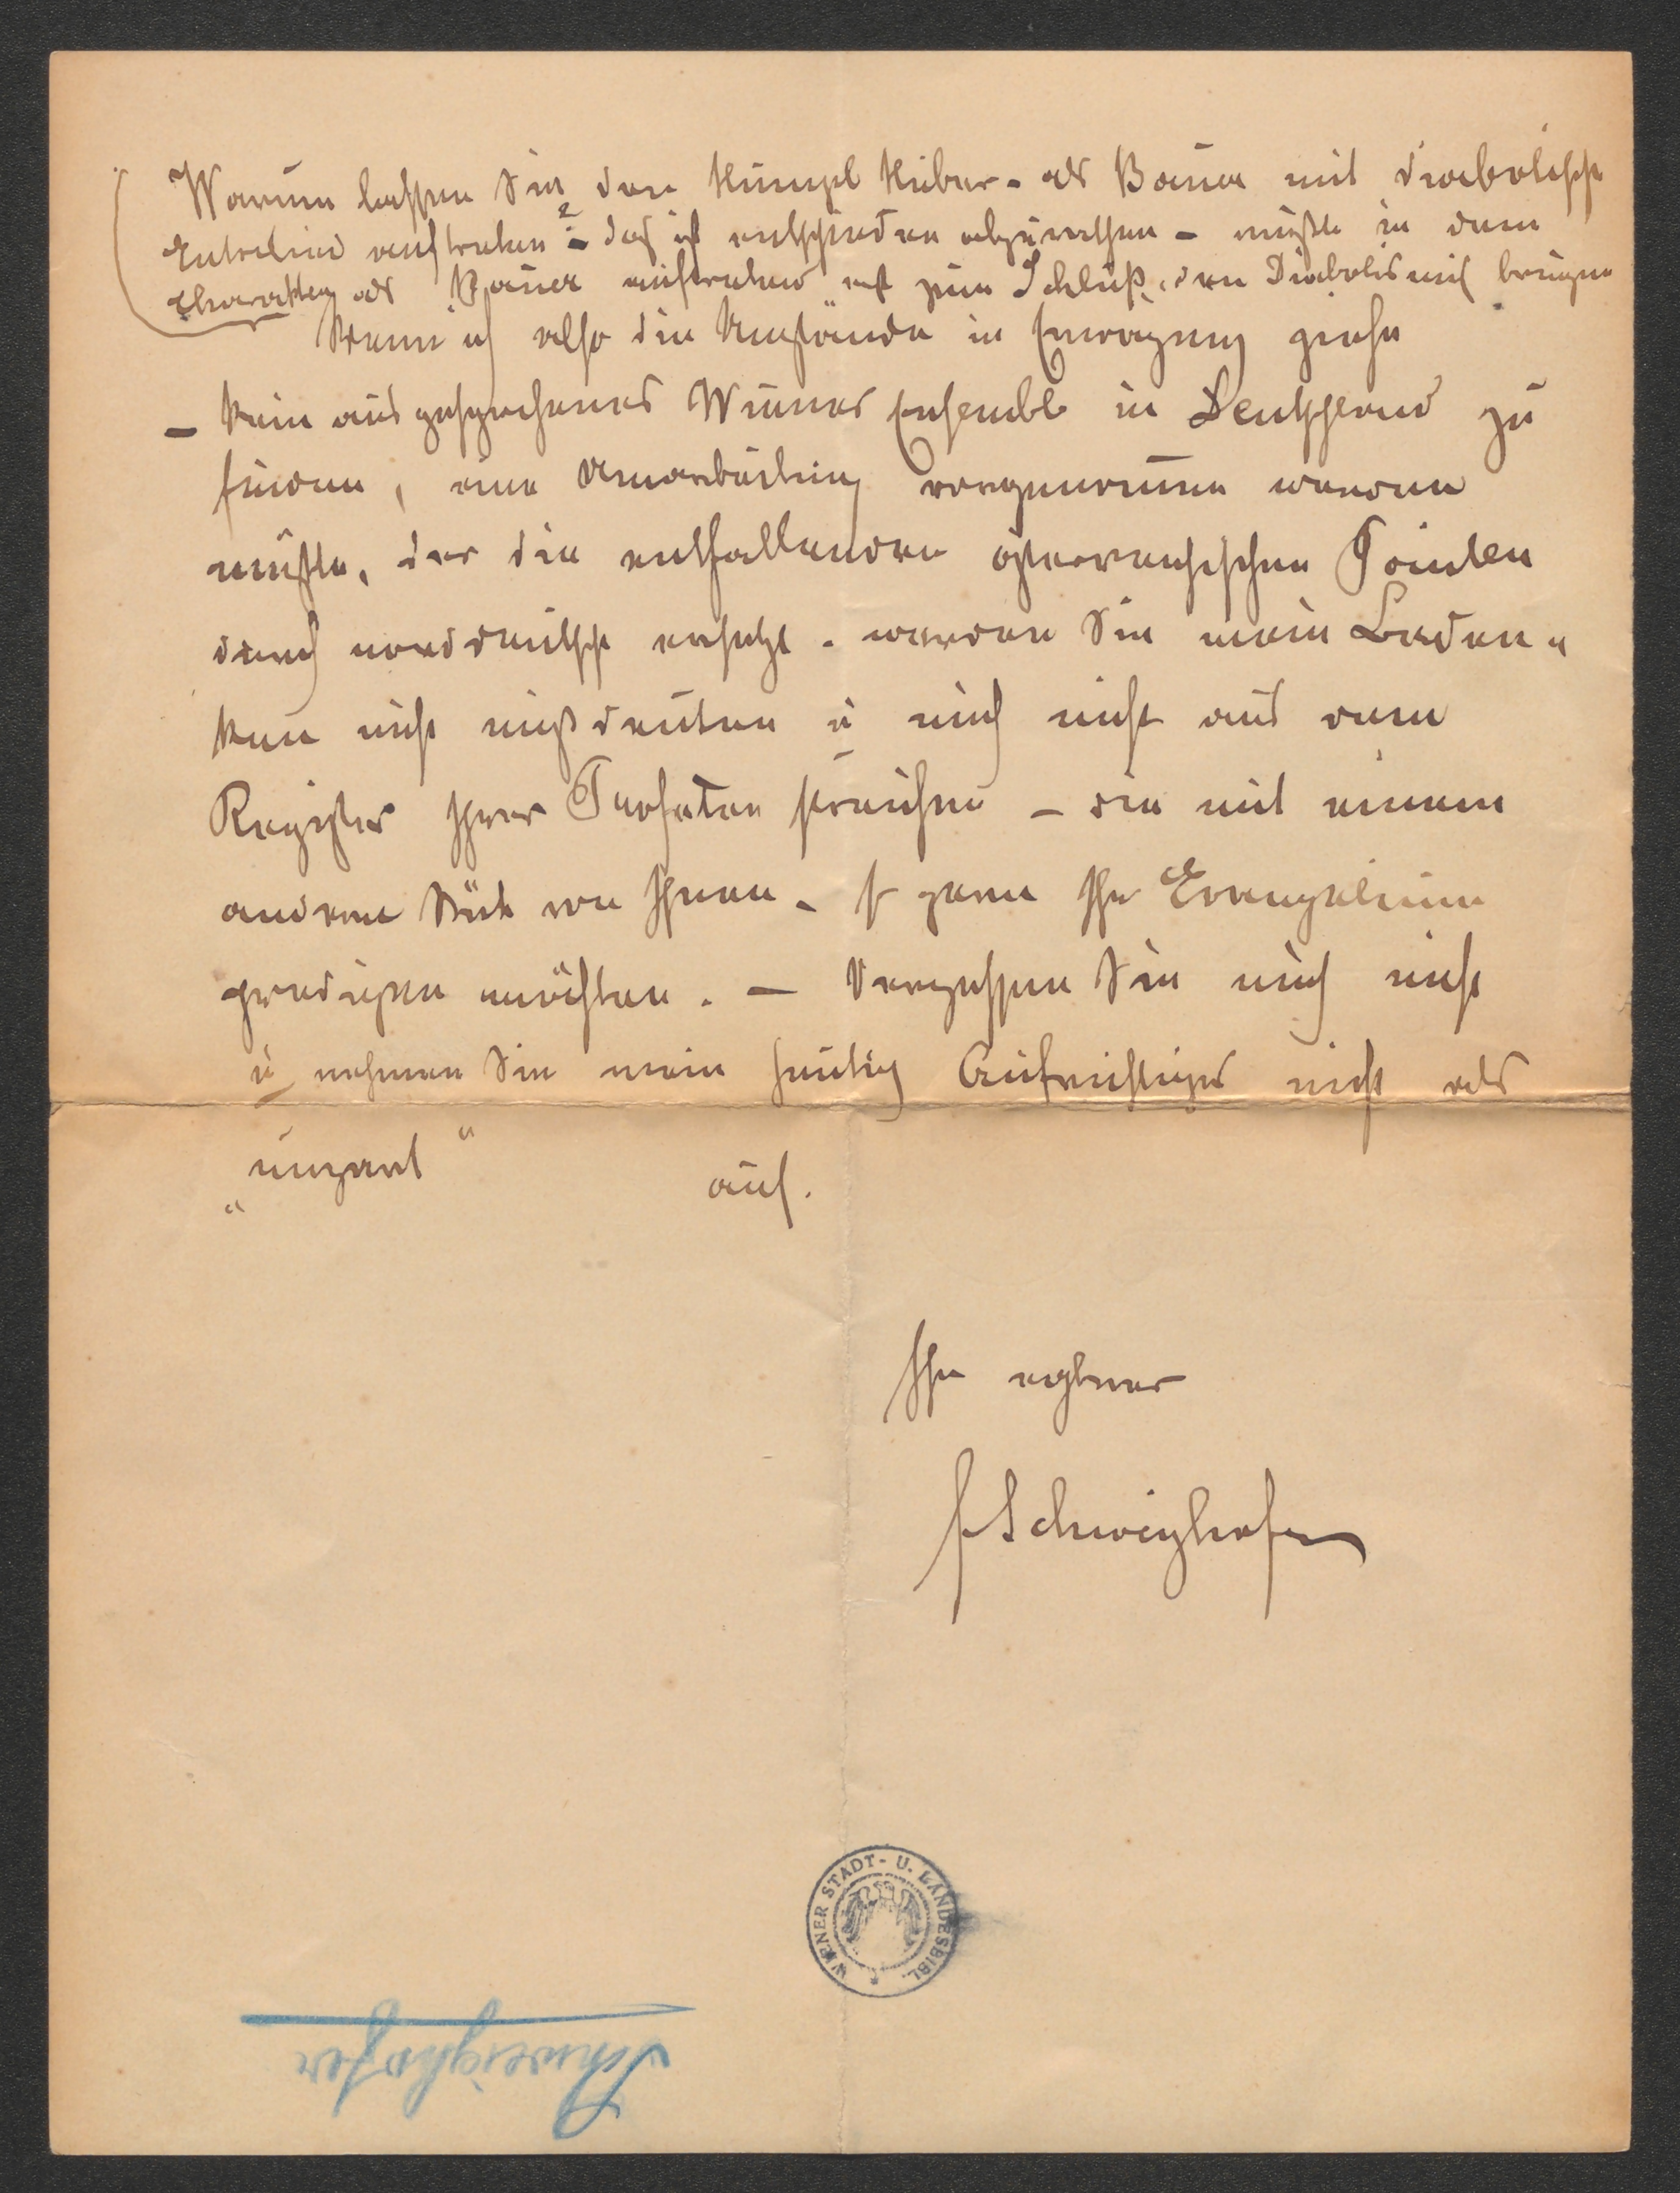 Warum lassen Sie den Huber - als Bauer mit diabolischen
Entrelied auftreten? - das ist entschieden abzurathen - müßte in dem
Charakter als Bauer auftretend erst zum Schluß den Diabolismus bringen
Wenn ich also die Umstände in Erwägung ziehe
- kein ausgesprochenes Wiener Ensemble in Deutschland zu
finden, eine Umarbeitung vorgenommen werden
müßte, der die entfallenden österreichischen Pointen
durch norddeutsche ersetzt - werden Sie mein Beden-
ken nicht mißdeuten u mich nicht aus dem
Register Ihrer Profeten streichen - die mit einem
anderen Stück von Ihnen - so gern Ihr Evangelium
predigen möchten. - Vergessen Sie mich nicht
u nehmen Sie mein heutig Aufrichtiges nicht als
„unzart" auf.
Ihr ergebener
F Schweighofer
WIENER STADT- U. LANDESBIBL.
Schweighofer